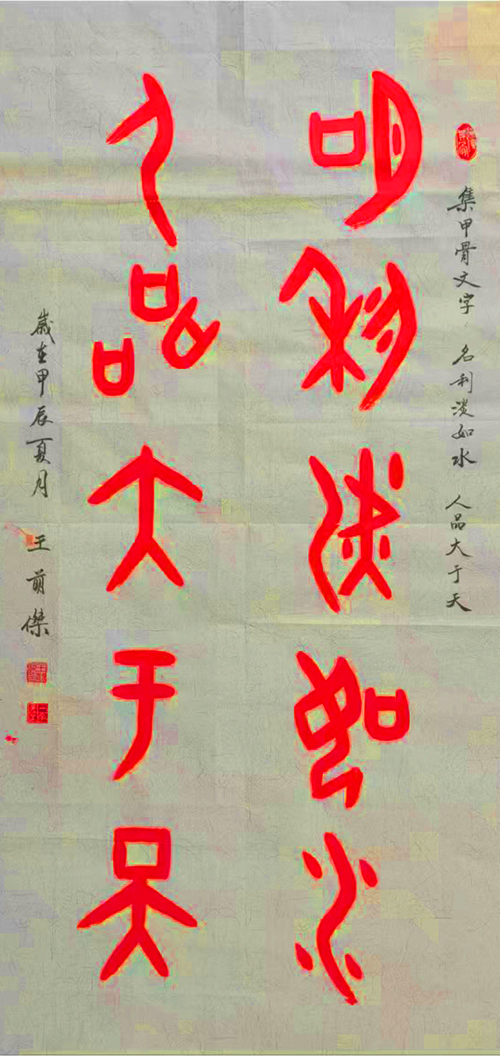 集甲骨文字 名利淡如水 人品大于天
名利淡如水
人品大于天
歲在甲辰夏月 王前傑